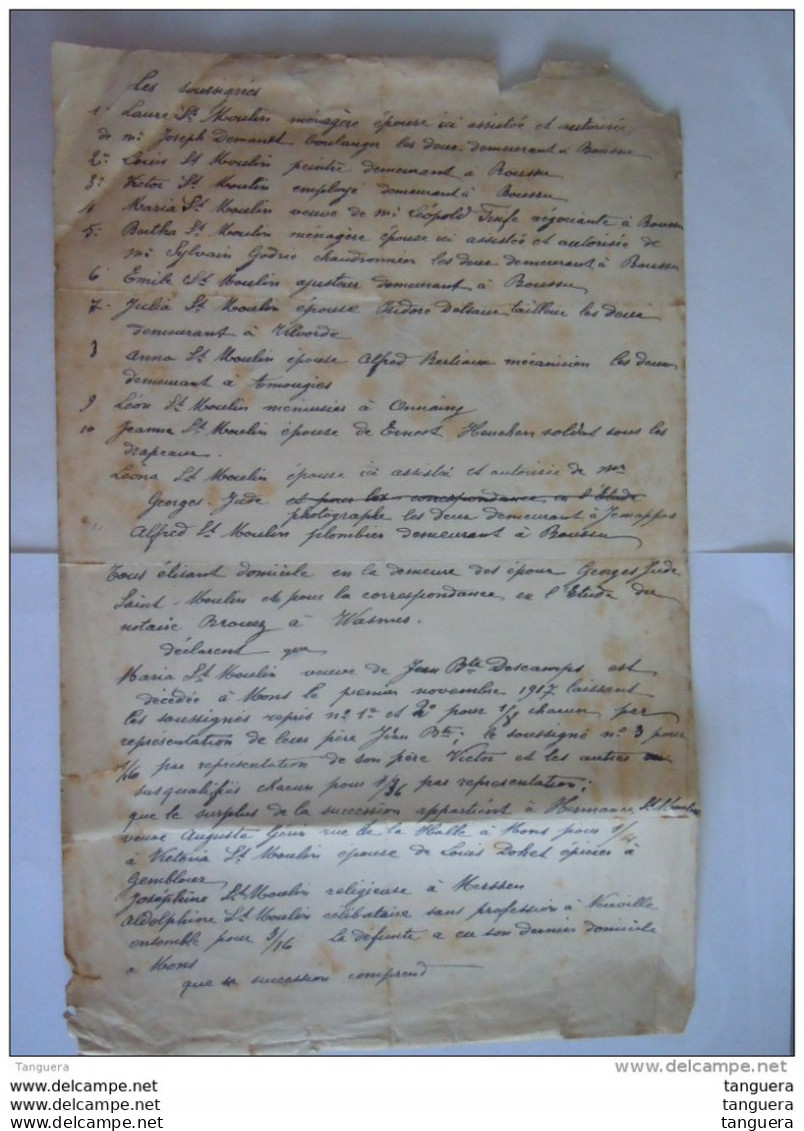 Les soussignés
1° Laure St Moulin ménagère épouse ici assistée et autorisée
de mr Joseph Demanet boulanger les deux demeurant à Boussu
2° Louis St Moulin peintre demeurant à Boussu
3° Victor St Moulin employé demeurant à Boussu
4 Maria St Moulin veuve de mr Léopold négociante à Boussu
5° Bertha St Moulin ménagère épouse ici assistée et autorisée de
mr Sylvain Godrie chaudronnier les deux demeurant à Boussu
6 Emile St Moulin ajusteur demeurant à Boussu
7 Julia St Moulin épouse Isidore Delsaux tailleur les deux
demeurant à Vilvorde
8 Anna St Moulin épouse Alfred Berliaux mécanicien les deux
demeurant à Amougies
9 Léon St Moulin menuisier à Onnaing
10 Jeanne St Moulin épouse de Ernest soldat sous les
drapeaux.
Léona St Moulin épouse ici assistée et autorisée de mr
Georges Jude et pour la correspondance en l'Etude
photographe les deux demeurant à Jemappes
Alfred St Moulin plombier demeurant à Boussu
Tous élisant domicile en la demeure des époux Georges Jude
Saint-Moulin et pour la correspondance en l'Etude du
notaire Brouez à Wasmes.
déclarent que
Maria St Moulin veuve de Jean Bte Descamps est
décédée à Mons le premier novembre 1917 laissant
les soussignés repris nos 1° et 2° pour 1/8 chacun par
représentation de leur père Jean Bte; le soussigné n° 3 pour
1/16 par représentation de son père Victor et les autres
susqualifiés chacun pour 1/36 par représentation;
que le surplus de la succession appartient à Hermance St Moulin
veuve Auguste Gérin rue de la Halle à Mons pour 1/4
à Victoria St Moulin épouse de Louis Doket épicier à
Gembloux
Joséphine St Moulin religieuse à Herssen
Aldolphine St Moulin célibataire sans profession à
ensemble pour 3/16 la défunte a eu son dernier domicile
à Mons
que sa succession comprend
Tanguera
delcampe.net
www.delcampe.net
www.delcampe.net
www.delcampe.net
tanguera
tanguera
tanguera